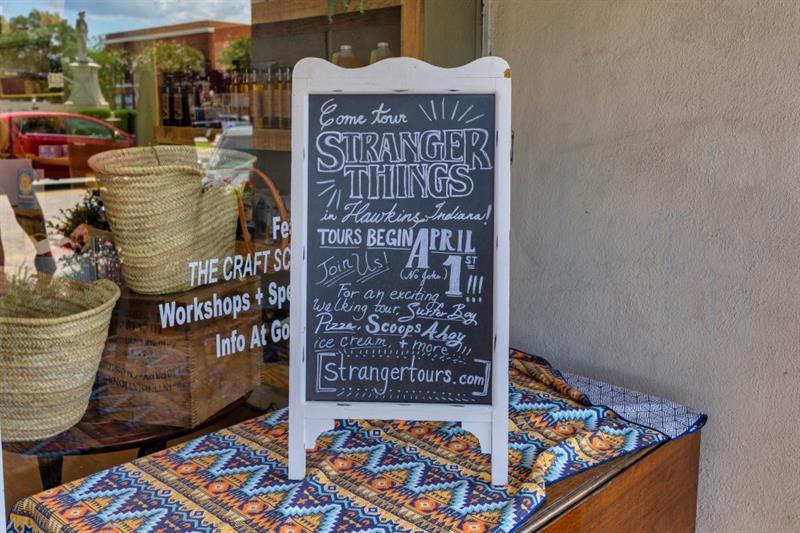 Come tour
STRANGER
THINGS
in Hawkins, Indiana!
TOURS BEGIN APRIL
1ST !!!
(No Joke!)
Join Us!
For an exciting
walking tour, Surfer Boy
Pizza, Scoops Ahoy
ice cream, + more!!!
[Strangertours.com]
THE CRAFT SC
Workshops + Spe
Info At Go